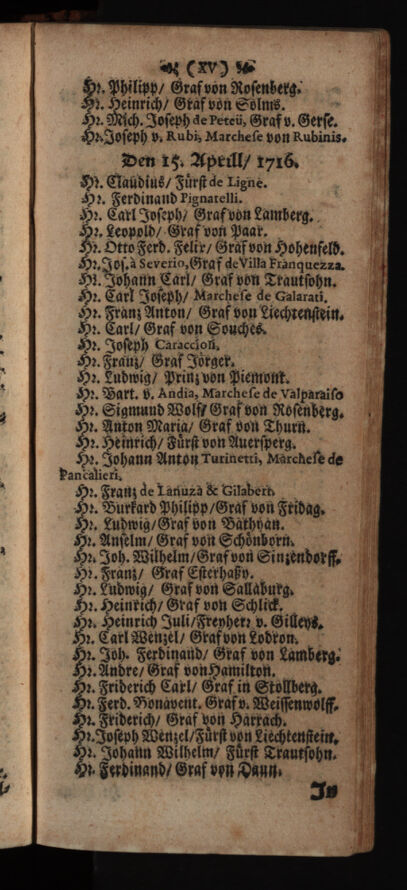 (XV)
Hr. Philipp/ Graf von Rosenberg.
Hr. Heinrich/ Graf von Solms.
Hr. Mich. Joseph de Peteü, Graf v. Gerse.
Hr. Joseph v. Rubi, Marchese von Rubinis.
Den 15. Aprill/ 1716.
Hr. Claudius/ Fürst de Ligne.
Hr. Ferdinand Pignatelli.
Hr. Carl Joseph/ Graf von Lamberg.
Hr. Leopold/ Graf von Paar.
Hr. Otto Ferd. Felix/ Graf von Hohenfeld.
Hr. Jos. à Severio, Graf de Villa Franquezza.
Hr. Johann Carl/ Graf von Trautsohn.
Hr. Carl Joseph/ Marchese de Galarati.
Hr. Franz Anton/ Graf von Liechtenstein.
Hr. Carl/ Graf von Souches.
Hr. Joseph Caraccioli.
Hr. Franz/ Graf Jörger.
Hr. Ludwig/ Prinz von Piemont.
Hr. Bart. v. Andia, Marchese de Valparaiso
Hr. Sigmund Wolf/ Graf von Rosenberg.
Hr. Anton Maria/ Graf von Thurn.
Hr. Heinrich/ Fürst von Auersperg.
Hr. Johann Anton Turinetti, Marchese de
Pancalieri.
Hr. Franz de Lanuza & Gilabert.
Hr. Burkard Philipp/ Graf von Fridag.
Hr. Ludwig/ Graf von Bathyan.
Hr. Anselm/ Graf von Schönborn.
Hr. Joh. Wilhelm/ Graf von Sinzendorff.
Hr. Franz/ Graf Esterhaßy.
Hr. Ludwig/ Graf von Sallaburg.
Hr. Heinrich/ Graf von Schlick.
Hr. Heinrich Juli/ Freyherr v. Gilleys.
Hr. Carl Wenzel/ Graf von Lodron.
Hr. Joh. Ferdinand/ Graf von Lamberg.
Hr. Andre/ Graf von Hamilton.
Hr. Friderich Carl/ Graf in Stollberg.
Hr. Ferd. Bonavent. Graf v. Weissenwolff.
Hr. Friderich/ Graf von Harrach.
Hr. Joseph Wenzel/ Fürst von Liechtenstein.
Hr. Johann Wilhelm/ Fürst Trautsohn.
Hr. Ferdinand/ Graf von Daun.
In